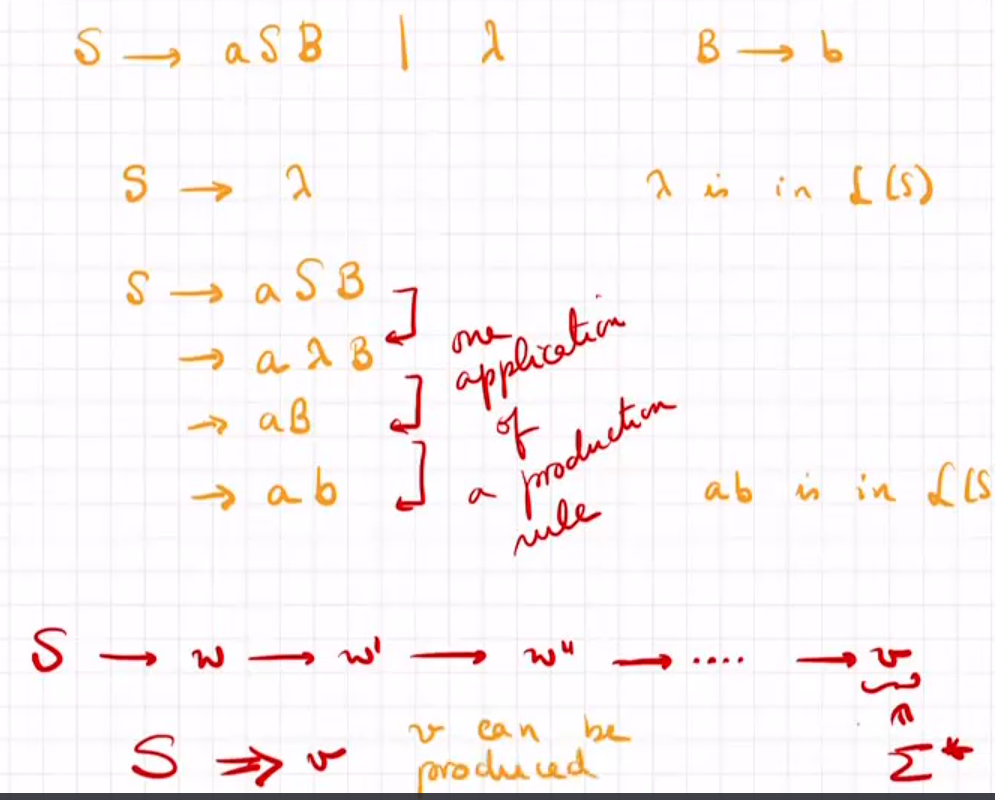 S → a S B | λ B → b
S → λ λ is in L(S)
S → a S B
→ a λ B
→ aB
→ a b
one
application
of
a production
rule
ab is in L(S
S → w → w' → w'' → .... → v
∈
Σ*
S ↠ v v can be
produced